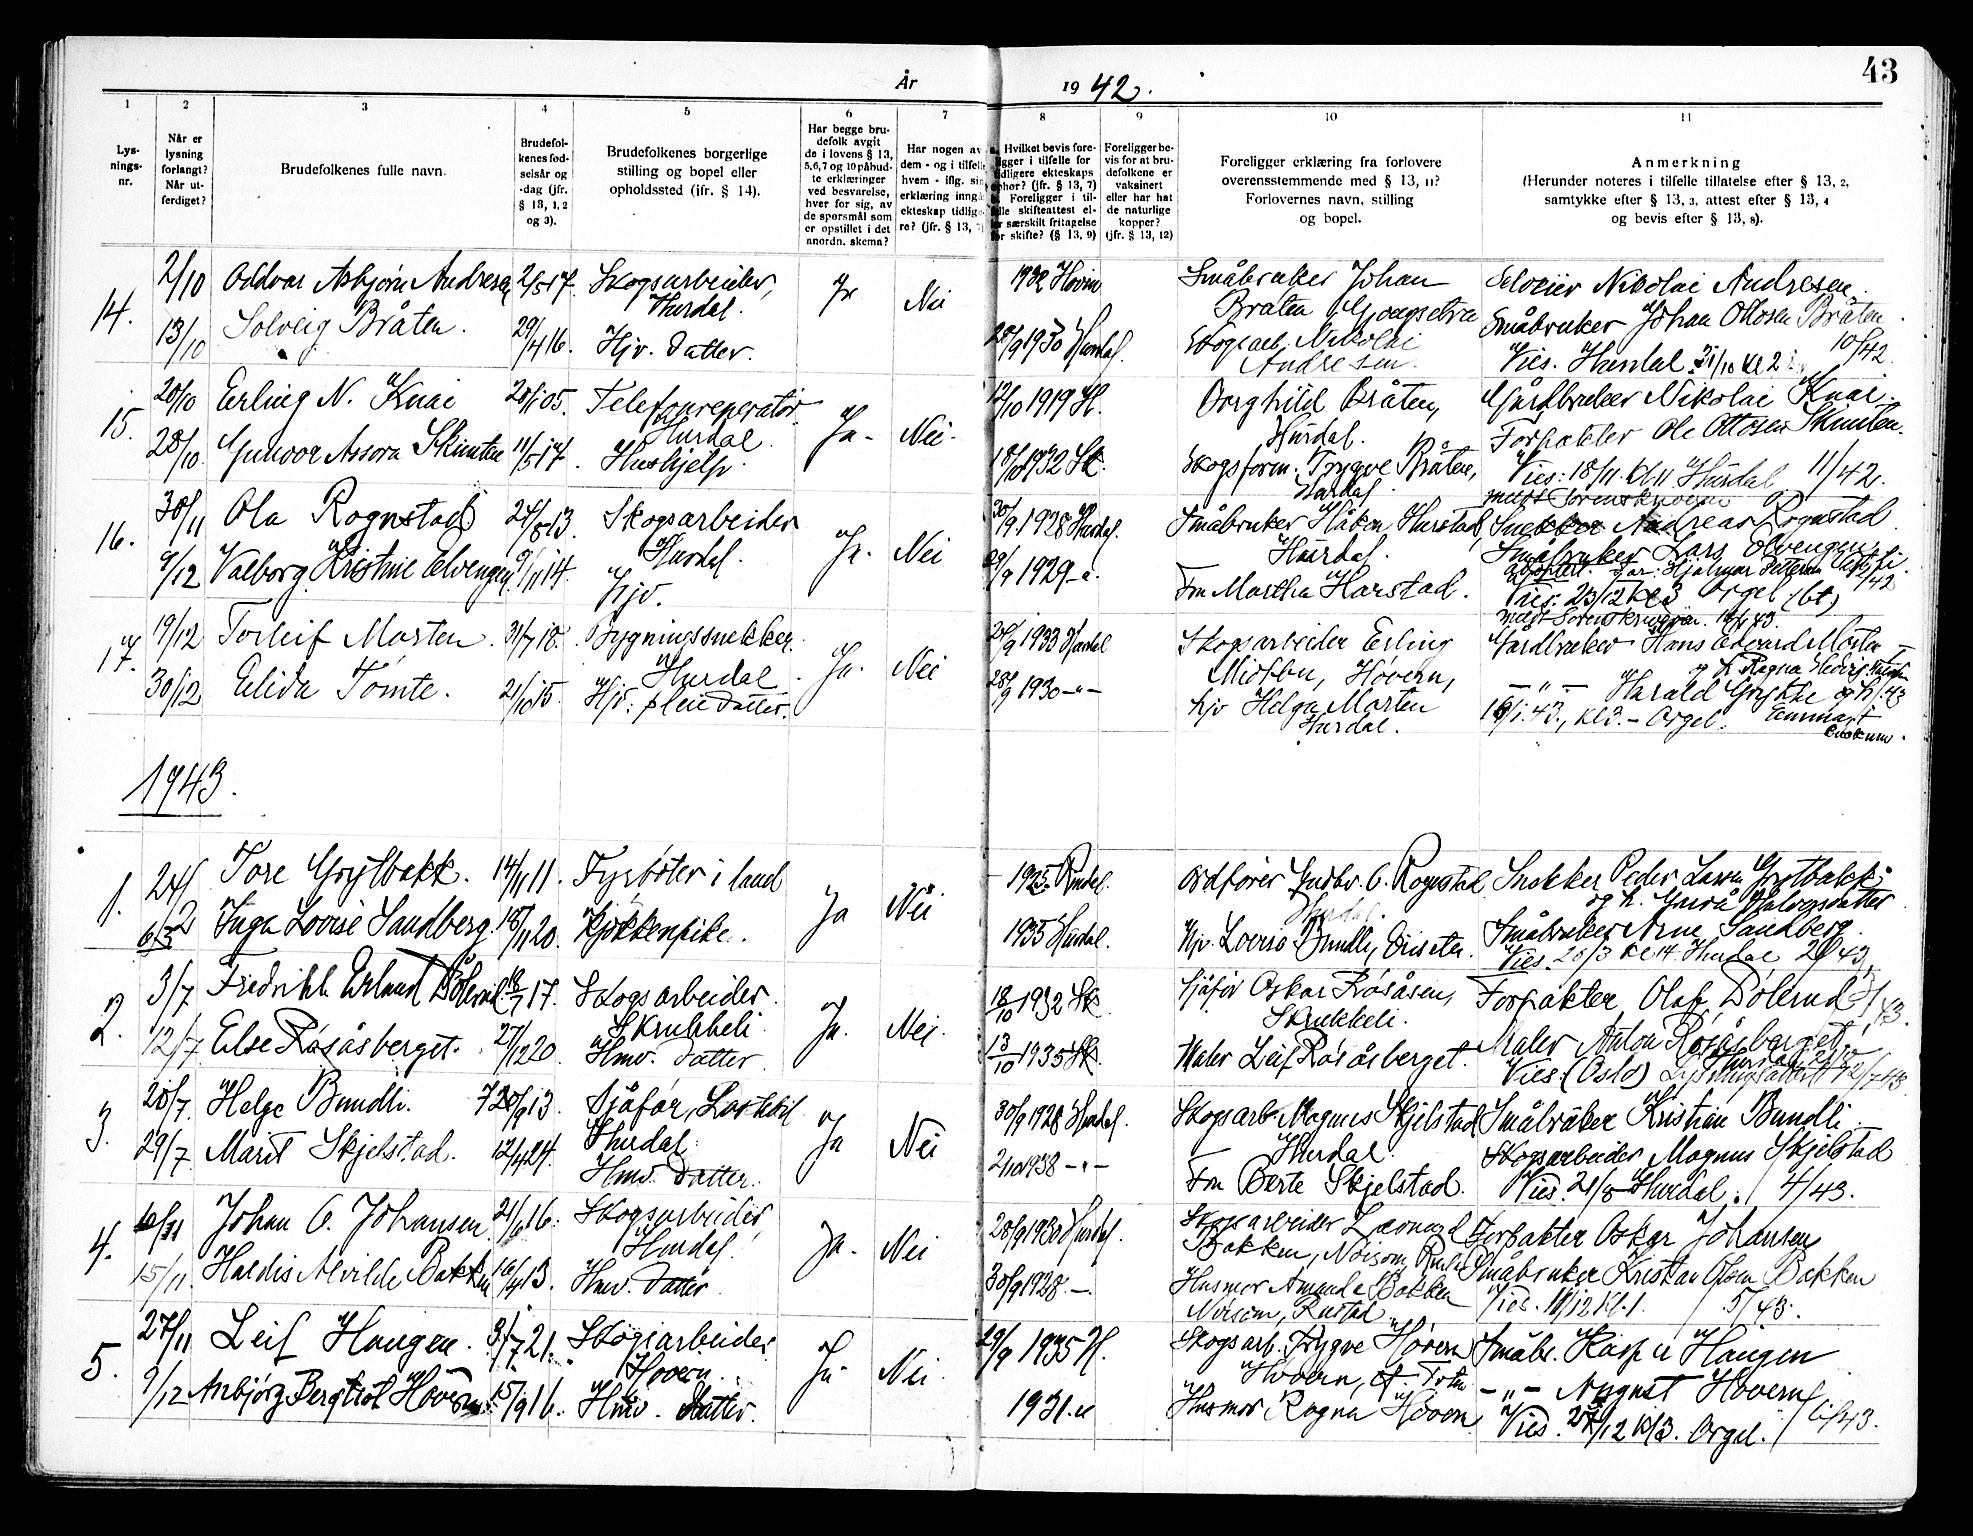 43
År 1942.
1 2 3 4 5 6 7 8 9 10 11
Lysningsnr.
Når er lysning forlangt? Når utferdiget?
Brudefolkenes fulle navn.
Brudefolkenes fødselsår og -dag (jfr. § 13, 1, 2 og 3).
Brudefolkenes borgerlige stilling og bopel eller opholdssted (jfr. § 14).
Har begge brudefolk avgit de i lovens § 13, 5,6,7 og 10 påbudte erklæringer ved besvarelse, hver for sig, av de spørsmål som er opstillet i det anordn. skema?
Har nogen av dem - og i tilfelle hvem - iflg. sin erklæring inngå ekteskap tidligere? (jfr. § 13, 7)
Hvilket bevis foreligger i tilfelle for tidligere ekteskaps ophør? (jfr. § 13, 7) Foreligger i tilfelle skifteattest eller særskilt fritagelse for skifte? (§ 13, 9)
Foreligger bevis for at brudefolkene er vaksinert eller har hat de naturlige kopper? (jfr. § 13, 12)
Foreligger erklæring fra forlovere overensstemmende med § 13, 11? Forlovernes navn, stilling og bopel.
Anmerkning (Herunder noteres i tilfelle tillatelse efter § 13, 2, samtykke efter § 13, 3, attest efter § 13, 4 og bevis efter § 13, 8).
14. 2/10 Oddvar Asbjørn Andresen 2/5 17. Skogsarbeider, Hurdal. Ja Nei 1932 Hovin Småbruker Johan Bråten Selveier Nikolai Andresen.
13/10 Solveig Bråten. 29/4 16. Hjv. Datter. 28/9 1930 Hurdal. Skogsarb. Nikolai Andresen. Småbruker Johan Ottosen Bråten 10/42.
Vies. Hurdal 31/10 kl 2
15. 20/10 Erling N. Knai 28/1 05. Telefonreparatør Hurdal. Ja. Nei. 12/10 1919 H. Borghild Bråten, Hurdal. Gårdbruker Nikolai Knai.
28/10 Gunvor Assora Skinten 11/5 17. Hushjelp. 1932 Sk. Skogsform. Trygve Bråten, Hurdal. Forpakter Ole Ottosen Skinten.
Vies: 18/11. kl 1 Hurdal 11/42.
16. 30/11 Ola Rognstad 24/8 13. Skogsarbeider Hurdal. Ja. Nei 30/9 1928 Hurdal. Småbruker Håken Harstad, Hurdal. Snekker Andreas Rognstad
9/12 Valborg Kristine Elvengen 9/11 14. hjv. 29/9 1929 -"- Fru Martha Harstad. Småbruker Lars Elvengen
Vies: 23/12 kl 3 Orgel (bt)
meldt Sorenskriveren
17. 19/12 Torleif Morten. 31/7 18. Bygningssnekker. Hurdal. Ja. Nei 24/9 1933 Hurdal Skogsarbeider Erling Midtbu, Høvern, Gårdbruker Hans Edvard Morten
30/12 Elida Tømte. 21/10 15. Hjv. pleiedatter. 28/9 1930 -"- hjv Helga Morten Hurdal. -"- Harald Grykke
16/1.43., kl 3. - Orgel.
1943.
1. 24/2 Tore Grytbakk. 14/11 11. Fyrbøter i land Ja Nei 1925 Ordfører Gårdbr. O. Rognstad Hurdal. Snekker Peder Larsen Grytbakk
6/3 Inga Lovise Sandberg. 18/11 20. Kjøkkenpike. 1935 Hurdal. Hjv. Lovise Bundli, Småbruker Arne Sandberg.
Vies. 20/3 kl 14. Hurdal
2. 3/7 Fredrikk Erland Dølerud 17. Skogsarbeider. Skrukkeli. Ja. Nei. 18/10 1932 Sk. Sjåfør Oskar Røsåsen, Skrukkeli. Forpakter Olaf Dølerud
12/7 Else Røsåsberget. 27/12 20. Hmv. Datter. 13/10 1935 Sk. Maler Leif Røsåsberget. Maler Anton Røsåsberget
Vies: (Oslo) Lysningsattest 12/7 43
3. 28/7. Helge Bundli. 20/9 13. Sjåfør, Lastbil Hurdal. Ja Nei 30/9 1928 Hurdal. Skogsarb. Magnus Skjelstad Hurdal. Småbruker Kristian Bundli.
29/7 Marit Skjelstad. 12/4 24. Hmv. Datter. 2/10 1938 -"- Fru Berte Skjelstad. Skogsarbeider Magnus Skjelstad
Vies. 21/8 Hurdal. 4/43.
4. 6/11 Johan O. Johansen 21/6 16. Skogsarbeider Hurdal. Ja. Nei 28/9 1930 Hurdal. Skogsarbeider Leonard Bakken, Forpakter Oskar Johansen
15/11. Haldis Alvilde Bakken 16/4 13. Hmv. Datter 30/9 1928 -"- Husmor Amanda Bakken Småbruker Kristian Olsen Bakken
Vies. 11/12 kl. 1. 5/43.
5. 27/11 Leif Haugen. 31/7 21. Skogsarbeider Høvern. Ja Nei. 29/9 1935 H. Skogsarb. Trygve Høvern Høvern, Småbr. Haugen
9/12 Anbjørg Bergtiot Høvern 15/9 16. Hmv. Datter. 1931. Husmor Ragna Høvern -"- August Høvern
Vies. 27/12 kl 3. Orgel. 6/43.